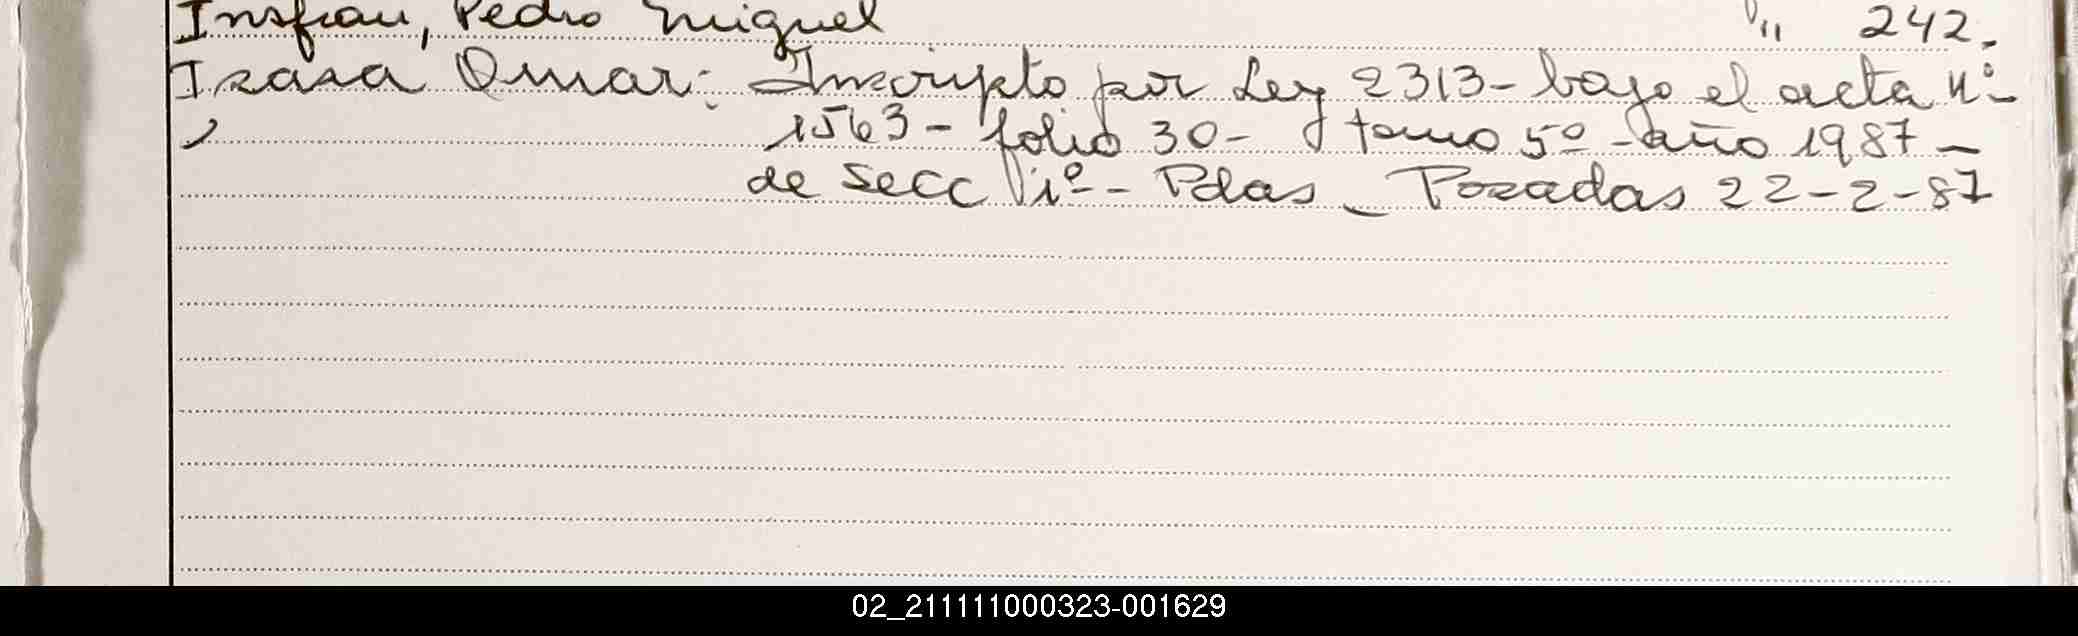 Insfran, Pedro Miguel " 242.
Izasa Omar: Inscripto por Ley 2313 - bajo el acta nº -
1563 - folio 30 - tomo 5º - año 1987 -
de Secc 1º - Pdas - Posadas 22-2-87
02_211111000323-001629